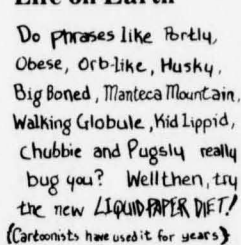 Life on Earth
Do phrases like Portly,
Obese, Orb-Like, Husky,
Big Boned, Manteca Mountain,
Walking Globule, Kid Lippid,
Chubbie and Pugsly really
bug you? Well then, try
the new LIQUID PAPER DIET!
(Cartoonists have used it for years)